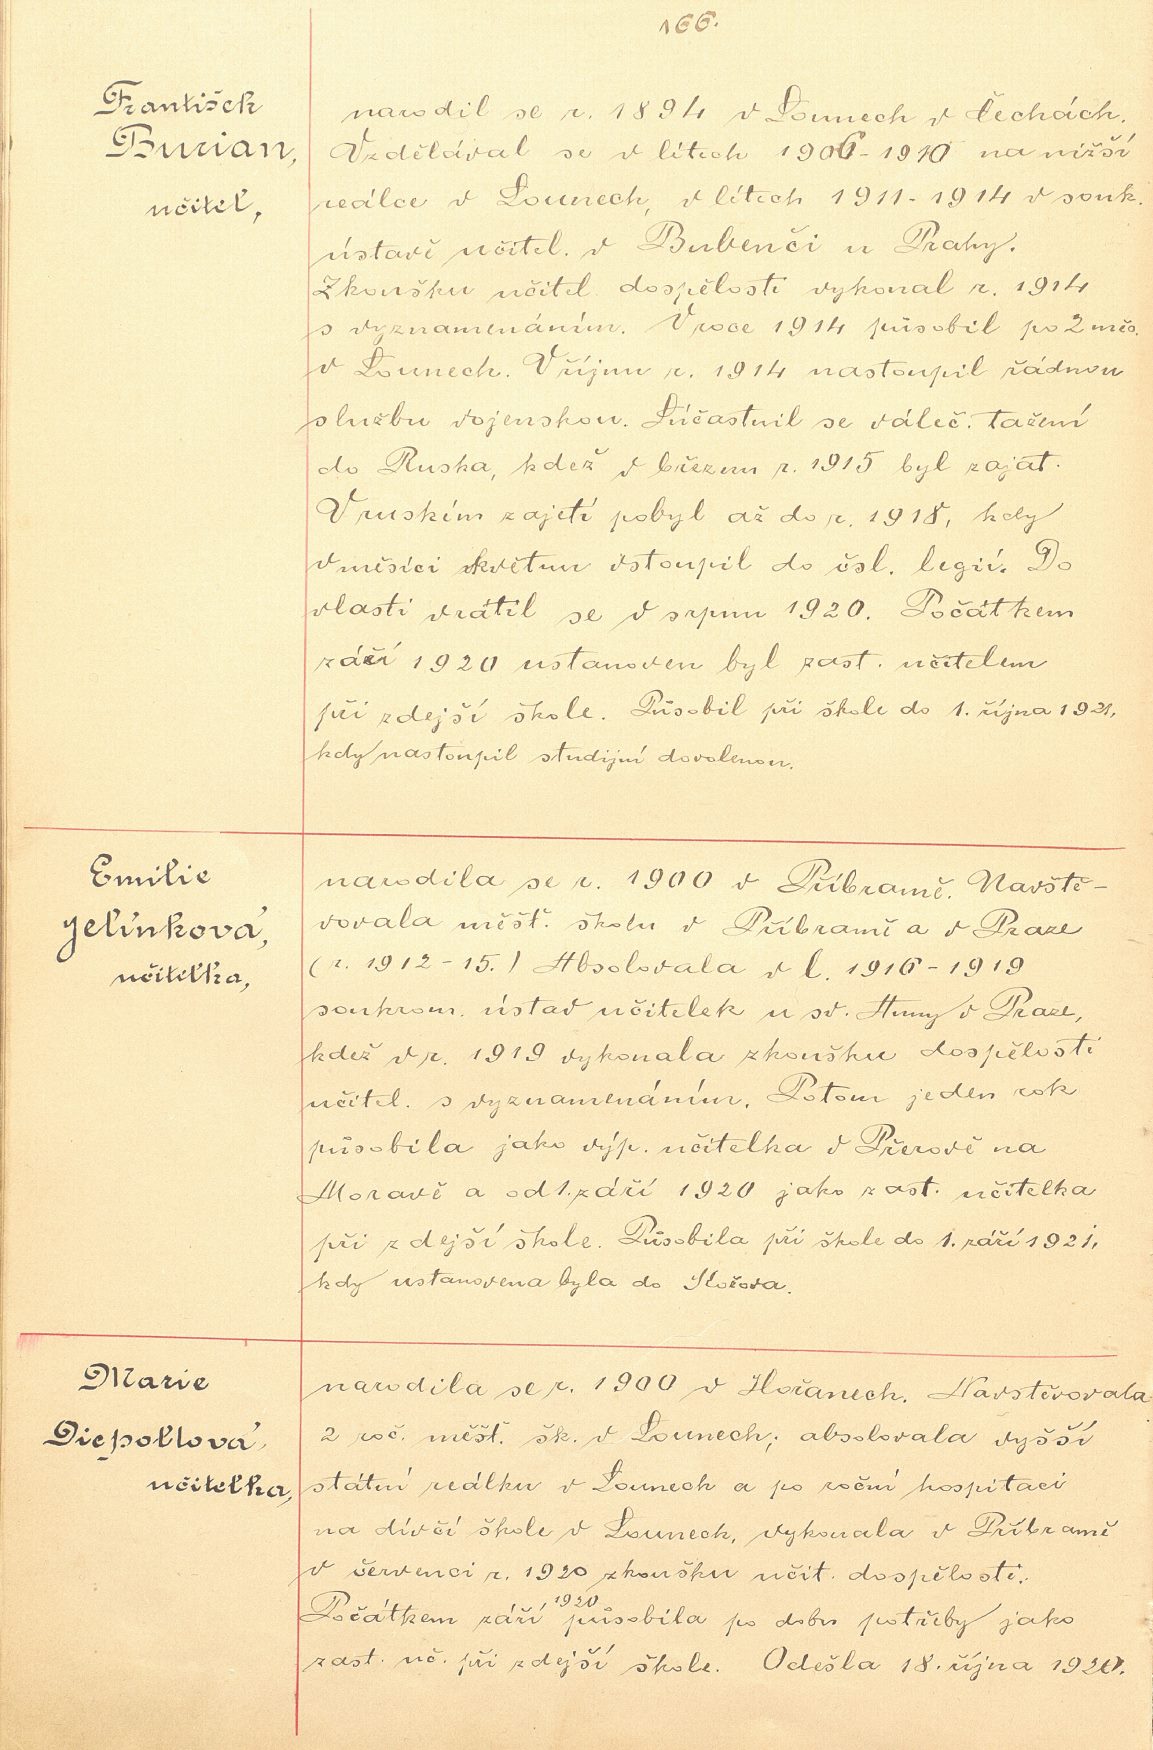 166.
František
Burian,
učitel,
narodil se r. 1894 v Lounech v Čechách.
Vzdělával se v létech 1906-1910 na nižší
reálce v Lounech, v létech 1911-1914 v souk.
ústavě učitel. v Bubenči u Prahy.
Zkoušku učitel. dospělosti vykonal r. 1914
s vyznamenáním. V roce 1914 působil po 2 měs.
v Lounech. V říjnu r. 1914 nastoupil řádnou
službu vojenskou. Súčastnil se váleč. tažení
do Ruska, kdež v březnu r. 1915 byl zajat.
V ruském zajetí pobyl až do r. 1918, kdy
v měsíci květnu vstoupil do čsl. legií. Do
vlasti vrátil se v srpnu 1920. Počátkem
září 1920 ustanoven byl zast. učitelem
při zdejší škole. Působil při škole do 1. října 1921,
kdy nastoupil studijní dovolenou.
Emilie
Jelínková,
učitelka,
narodila se r. 1900 v Příbramě. Navště-
vovala měšť. školu v Příbramě a v Praze
(r. 1912-15.) Absolovala v l. 1916-1919
soukrom. ústav učitelek u sv. Anny v Praze,
kdež v r. 1919 vykonala zkoušku dospělosti
učitel. s vyznamenáním. Potom jeden rok
působila jako výp. učitelka v Přerově na
Moravě a od 1. září 1920 jako zast. učitelka
při zdejší škole. Působila při škole do 1. září 1921,
kdy ustanovena byla do
Marie
Diepoltová,
učitelka,
narodila se r. 1900 v Hořanech. Navstěvovala
2 roč. měšť. šk. v Lounech; absolovala vyšší
státní reálku v Lounech a po roční hospitaci
na dívčí škole v Lounech, vykonala v Příbramě
v červenci r. 1920 zkoušku učit. dospělosti.
Počátkem září 1920 působila po dobu potřeby jako
zast. uč. při zdejší škole. Odešla 18. října 1920.